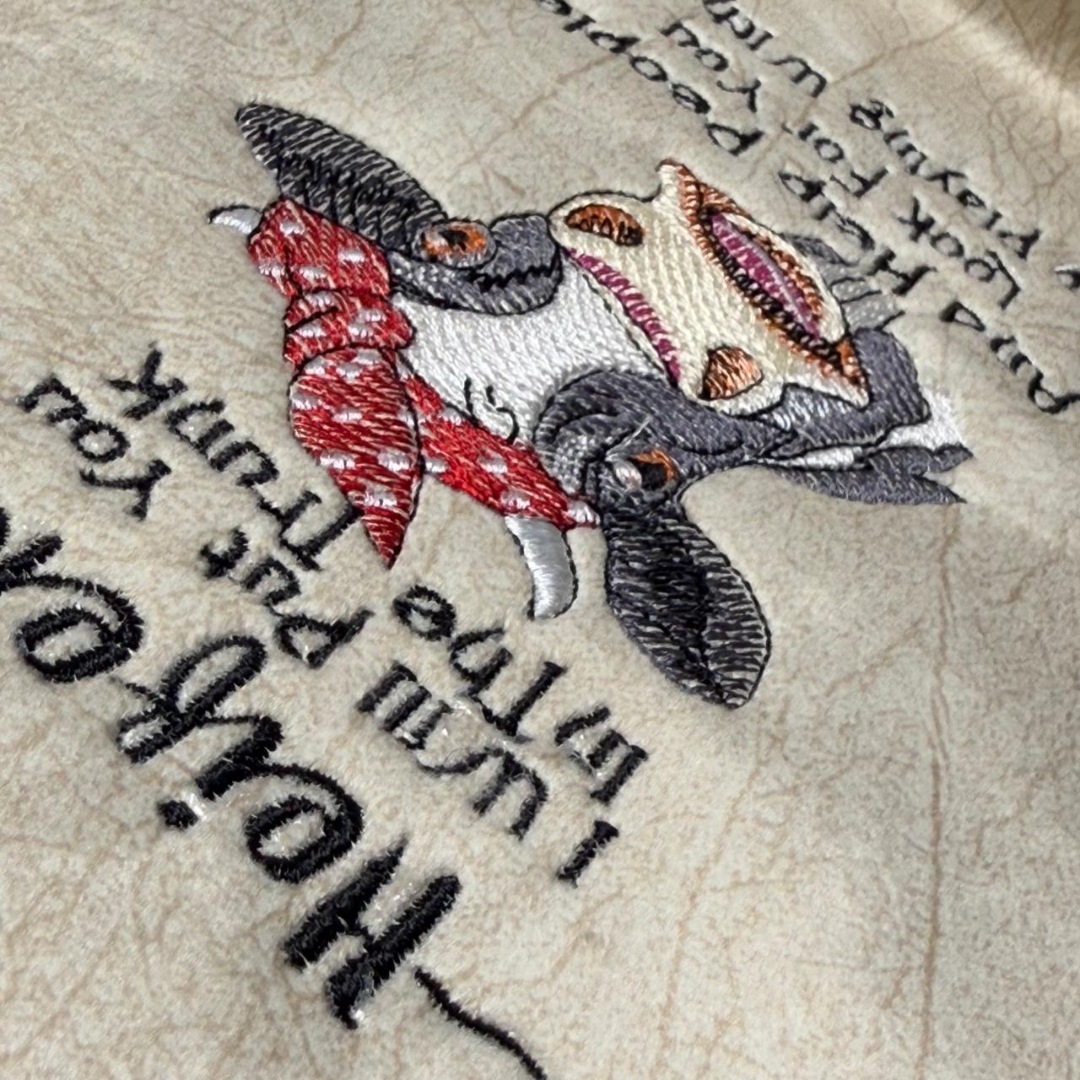 Hairy
I Will Put You
In The Trunk
And Help People
Look For You
Playing With